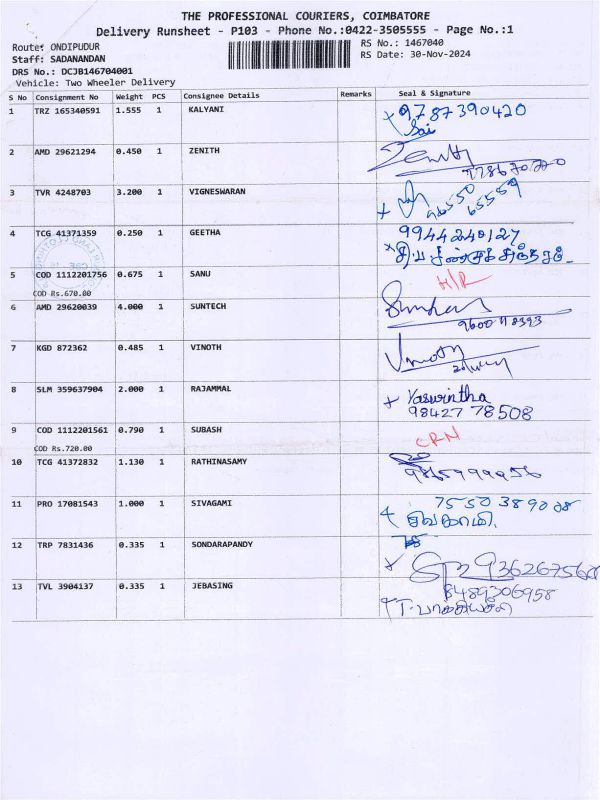 THE PROFESSIONAL COURIERS, COIMBATORE
Delivery Runsheet - P103 - Phone No.:0422-3505555 - Page No.:1
Route: ONDIPUDUR
RS No.: 1467040
Staff: SADANANDAN
RS Date: 30-Nov-2024
DRS No.: DCJB146704001
Vehicle: Two Wheeler Delivery
S No Consignment No Weight PCS Consignee Details Remarks Seal & Signature
1 TRZ 165340591 1.555 1 KALYANI 9787390420
Sai
2 AMD 29621294 0.450 1 ZENITH Zenith
3 TVR 4248703 3.200 1 VIGNESWARAN 96550
65559
4 TCG 41371359 0.250 1 GEETHA 9944240127
5 COD 1112201756 0.675 1 SANU H/R
COD Rs.670.00
6 AMD 29620039 4.000 1 SUNTECH
7 KGD 872362 0.485 1 VINOTH Vinoth
8 SLM 359637904 2.000 1 RAJAMMAL Yaswintha
98427 78508
9 COD 1112201561 0.790 1 SUBASH CRN
COD Rs.720.00
10 TCG 41372832 1.130 1 RATHINASAMY
11 PRO 17081543 1.000 1 SIVAGAMI
சிவகாமி
12 TRP 7831436 0.335 1 SONDARAPANDY
13 TVL 3904137 0.335 1 JEBASING 8489306958